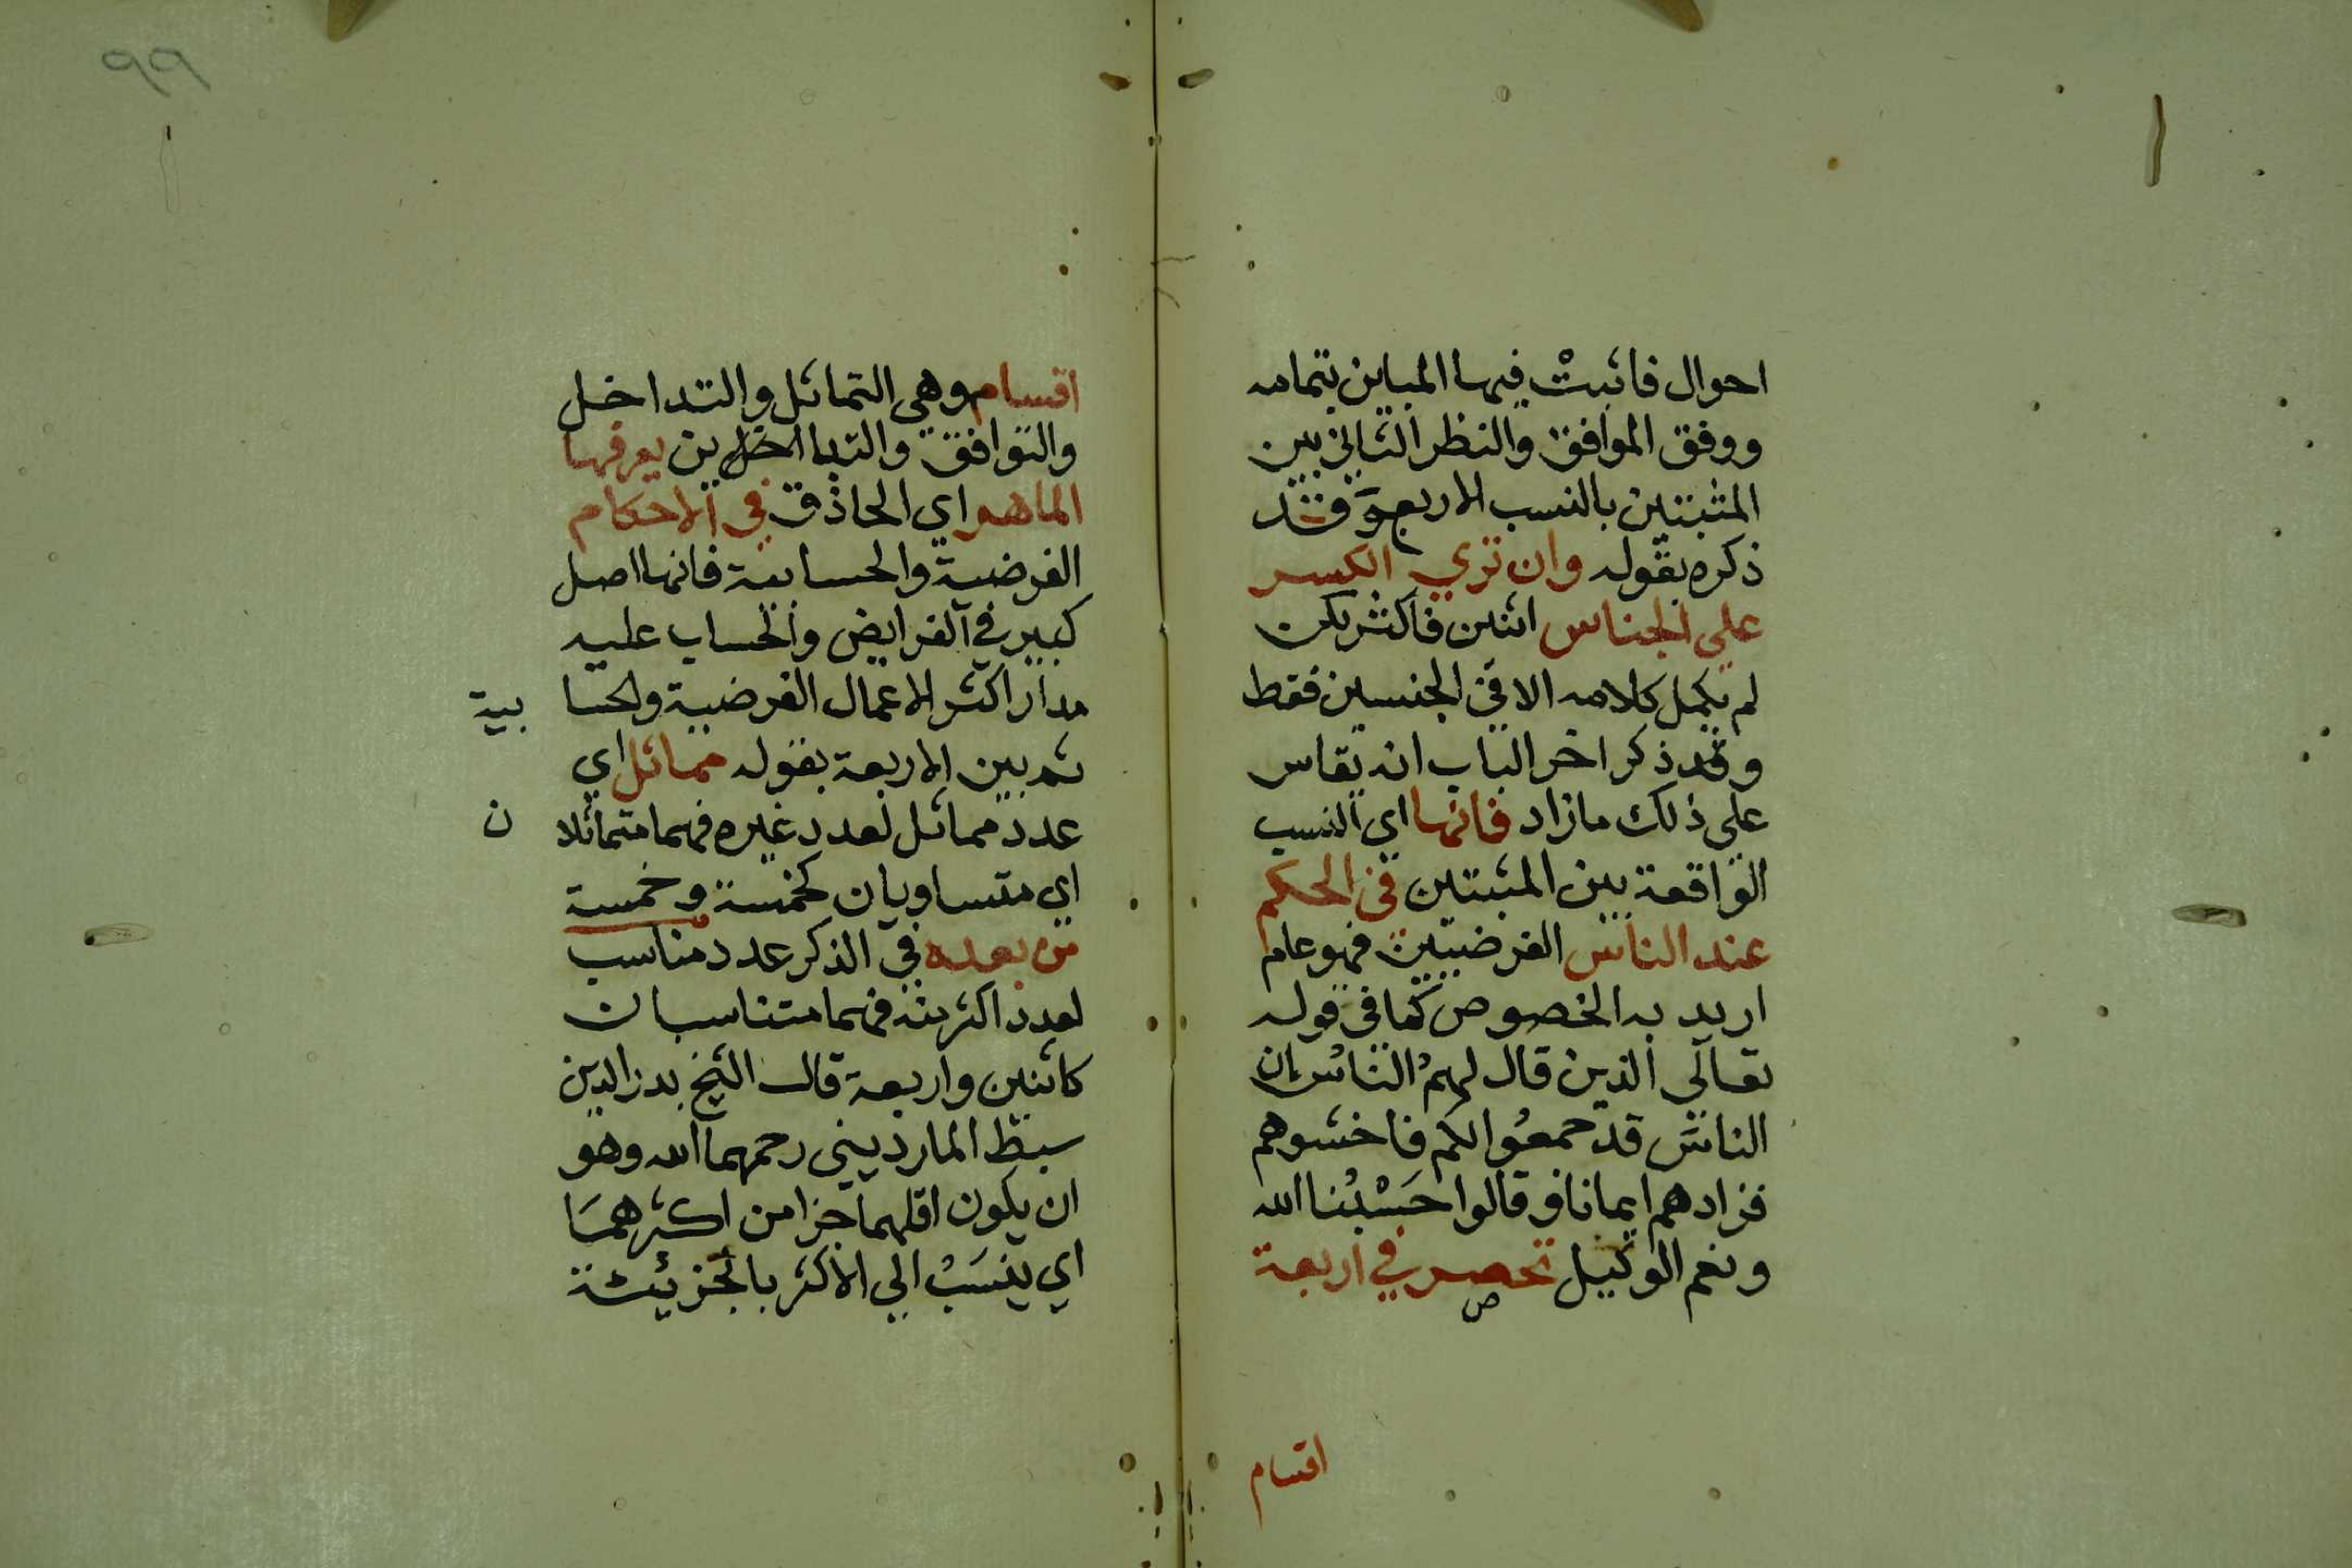 احوال فاثبتْ فيها المباين بتمامه
ووفق الموافق والنظر الثاني بين
المثبتين بالنسب الاربعة وقد
ذكره بقوله وان تري الكسر
علي اجناس اثنين فاكثر لكن
لم يكمل كلامه الا في الجنسين فقط
وقد ذكر اخر الباب انه يقاس
علي ذلك مازاد فانها اي النسب
الواقعة بين المثبتين في الحكم
عند الناس الفرضيين فهو عام
اريد به الخصوص كما في قوله
تعالي الذين قال لهمُ الناسُ إن
الناسَ قد جمعُوا لكم فاخشوهم
فزادهم ايمانا وقالوا حَسْبُنا الله
ونعم الوكيل تحصر في اربعة
اقسام
٩٩
اقسام وهي التماثل والتداخل
والتوافق والتباين يعرفها
الماهر اي الحاذق في الاحكام
الفرضية والحسابية فانها اصل
كبير في الفرايض والحساب عليه
مدار اكثر الاعمال الفرضية ولحسا بية
ثم بين الاربعة بقوله مماثل اي
عدد مماثل لعدد غيره فهما متماثلا ن
اي متساويان كخمسة وخمسة
من بعده في الذكر عدد مناسب
لعدد اكثر منه فهما متناسبان
كاثنين واربعة قال الشيخ بدر الدين
سبط المارديني رحمهما الله وهو
ان يكون اقلهما جزا من اكثرهمَا
اي ينسَبْ الي الاكثر بالجزئية